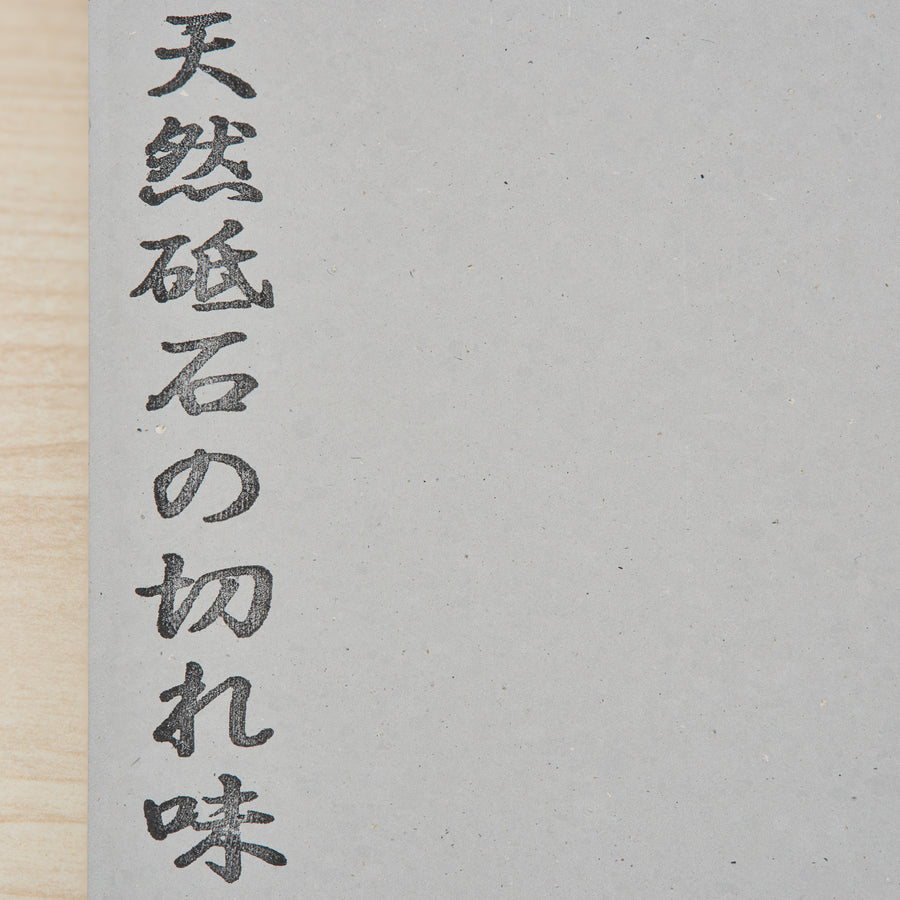 天然砥石の切れ味